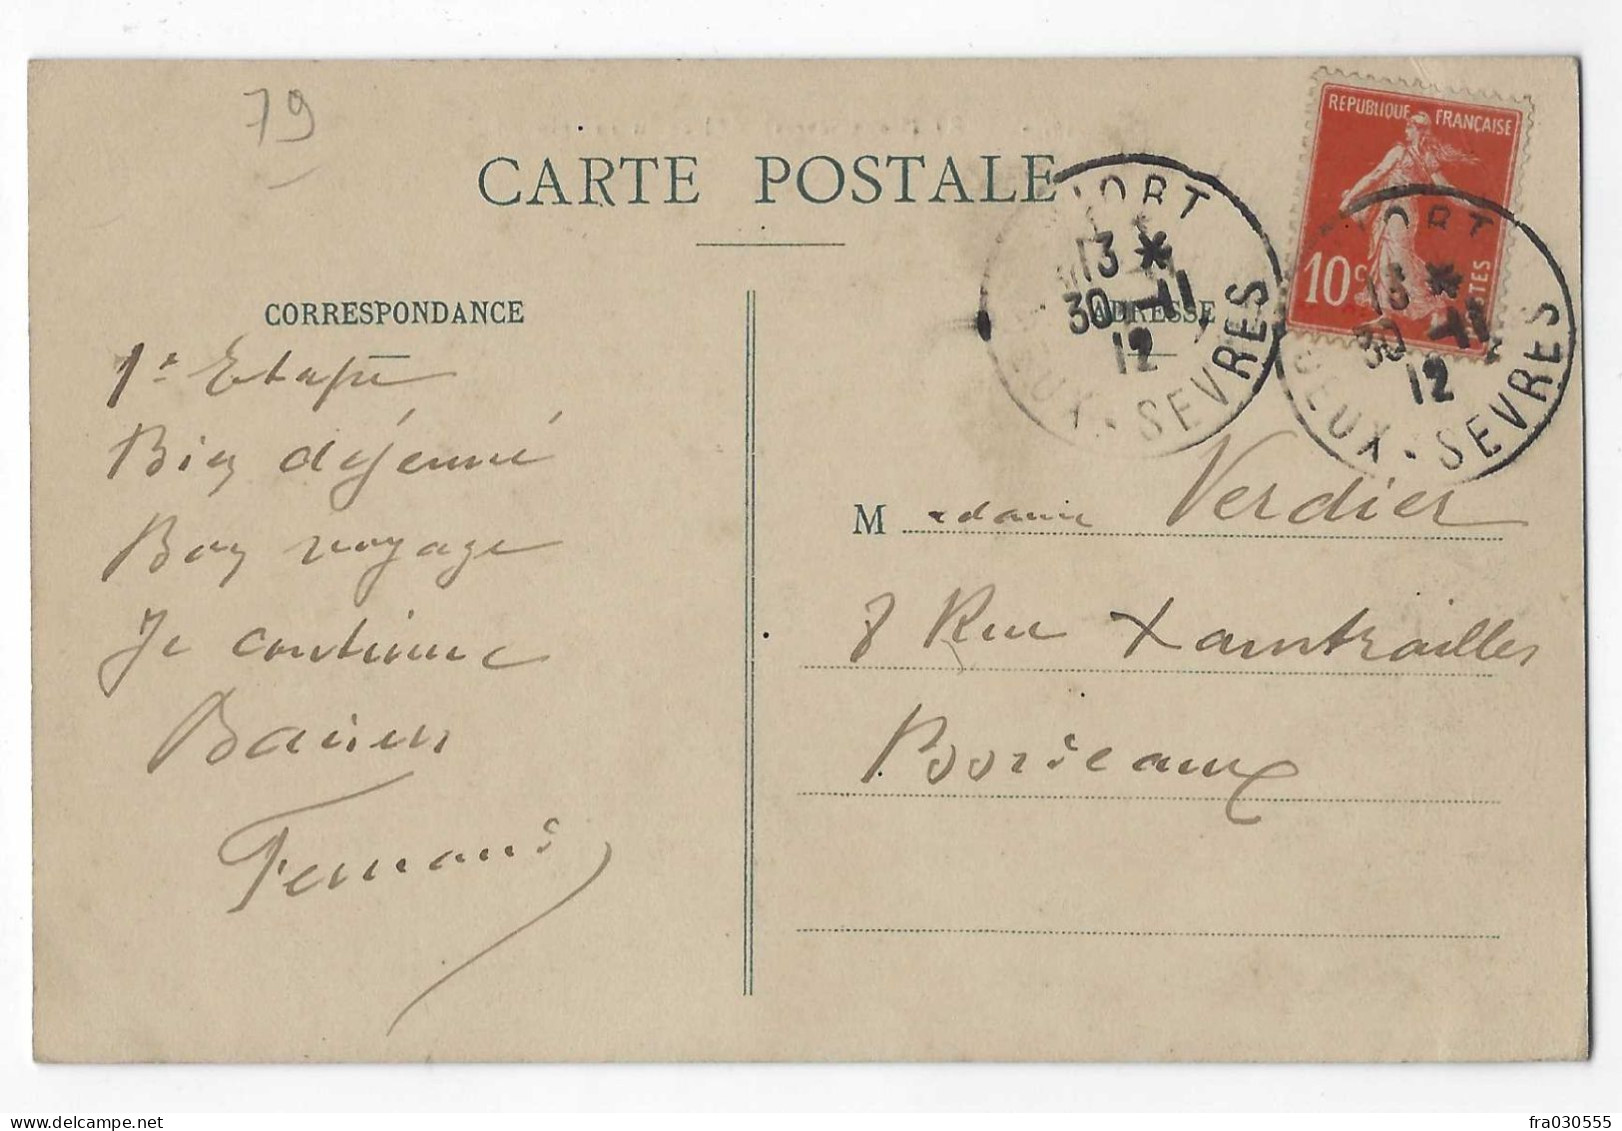 79
CARTE POSTALE
REPUBLIQUE FRANÇAISE
10c
POSTES
NIORT
13 *
30 -11
12
DEUX-SEVRES
NIORT
13 *
30 -11
12
DEUX-SEVRES
CORRESPONDANCE
ADRESSE
1e Etape
Bien déjeuné
Bon voyage
Je continue
Baisers
Fernand
Madame Verdier
8 Rue Xaintrailles
Bordeaux
fra030555